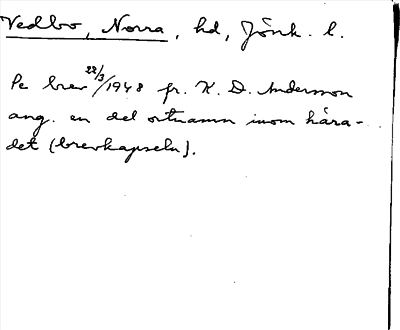 Vedbo, Norra, hd, Jönk. l.
Se brev 22/3 1948 fr. K. D. Andersson
ang. en del ortnamn inom hära-
det (brevkapseln).